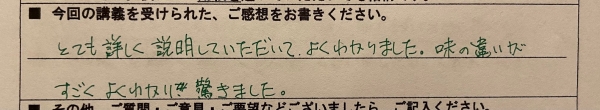 ■ 今回の講義を受けられた、ご感想をお書きください。
とても詳しく説明していただいて、よくわかりました。味の違いが
すごくよくわかり驚きました。
■ その他、ご質問・ご意見・ご要望などございましたら、ご記入ください。